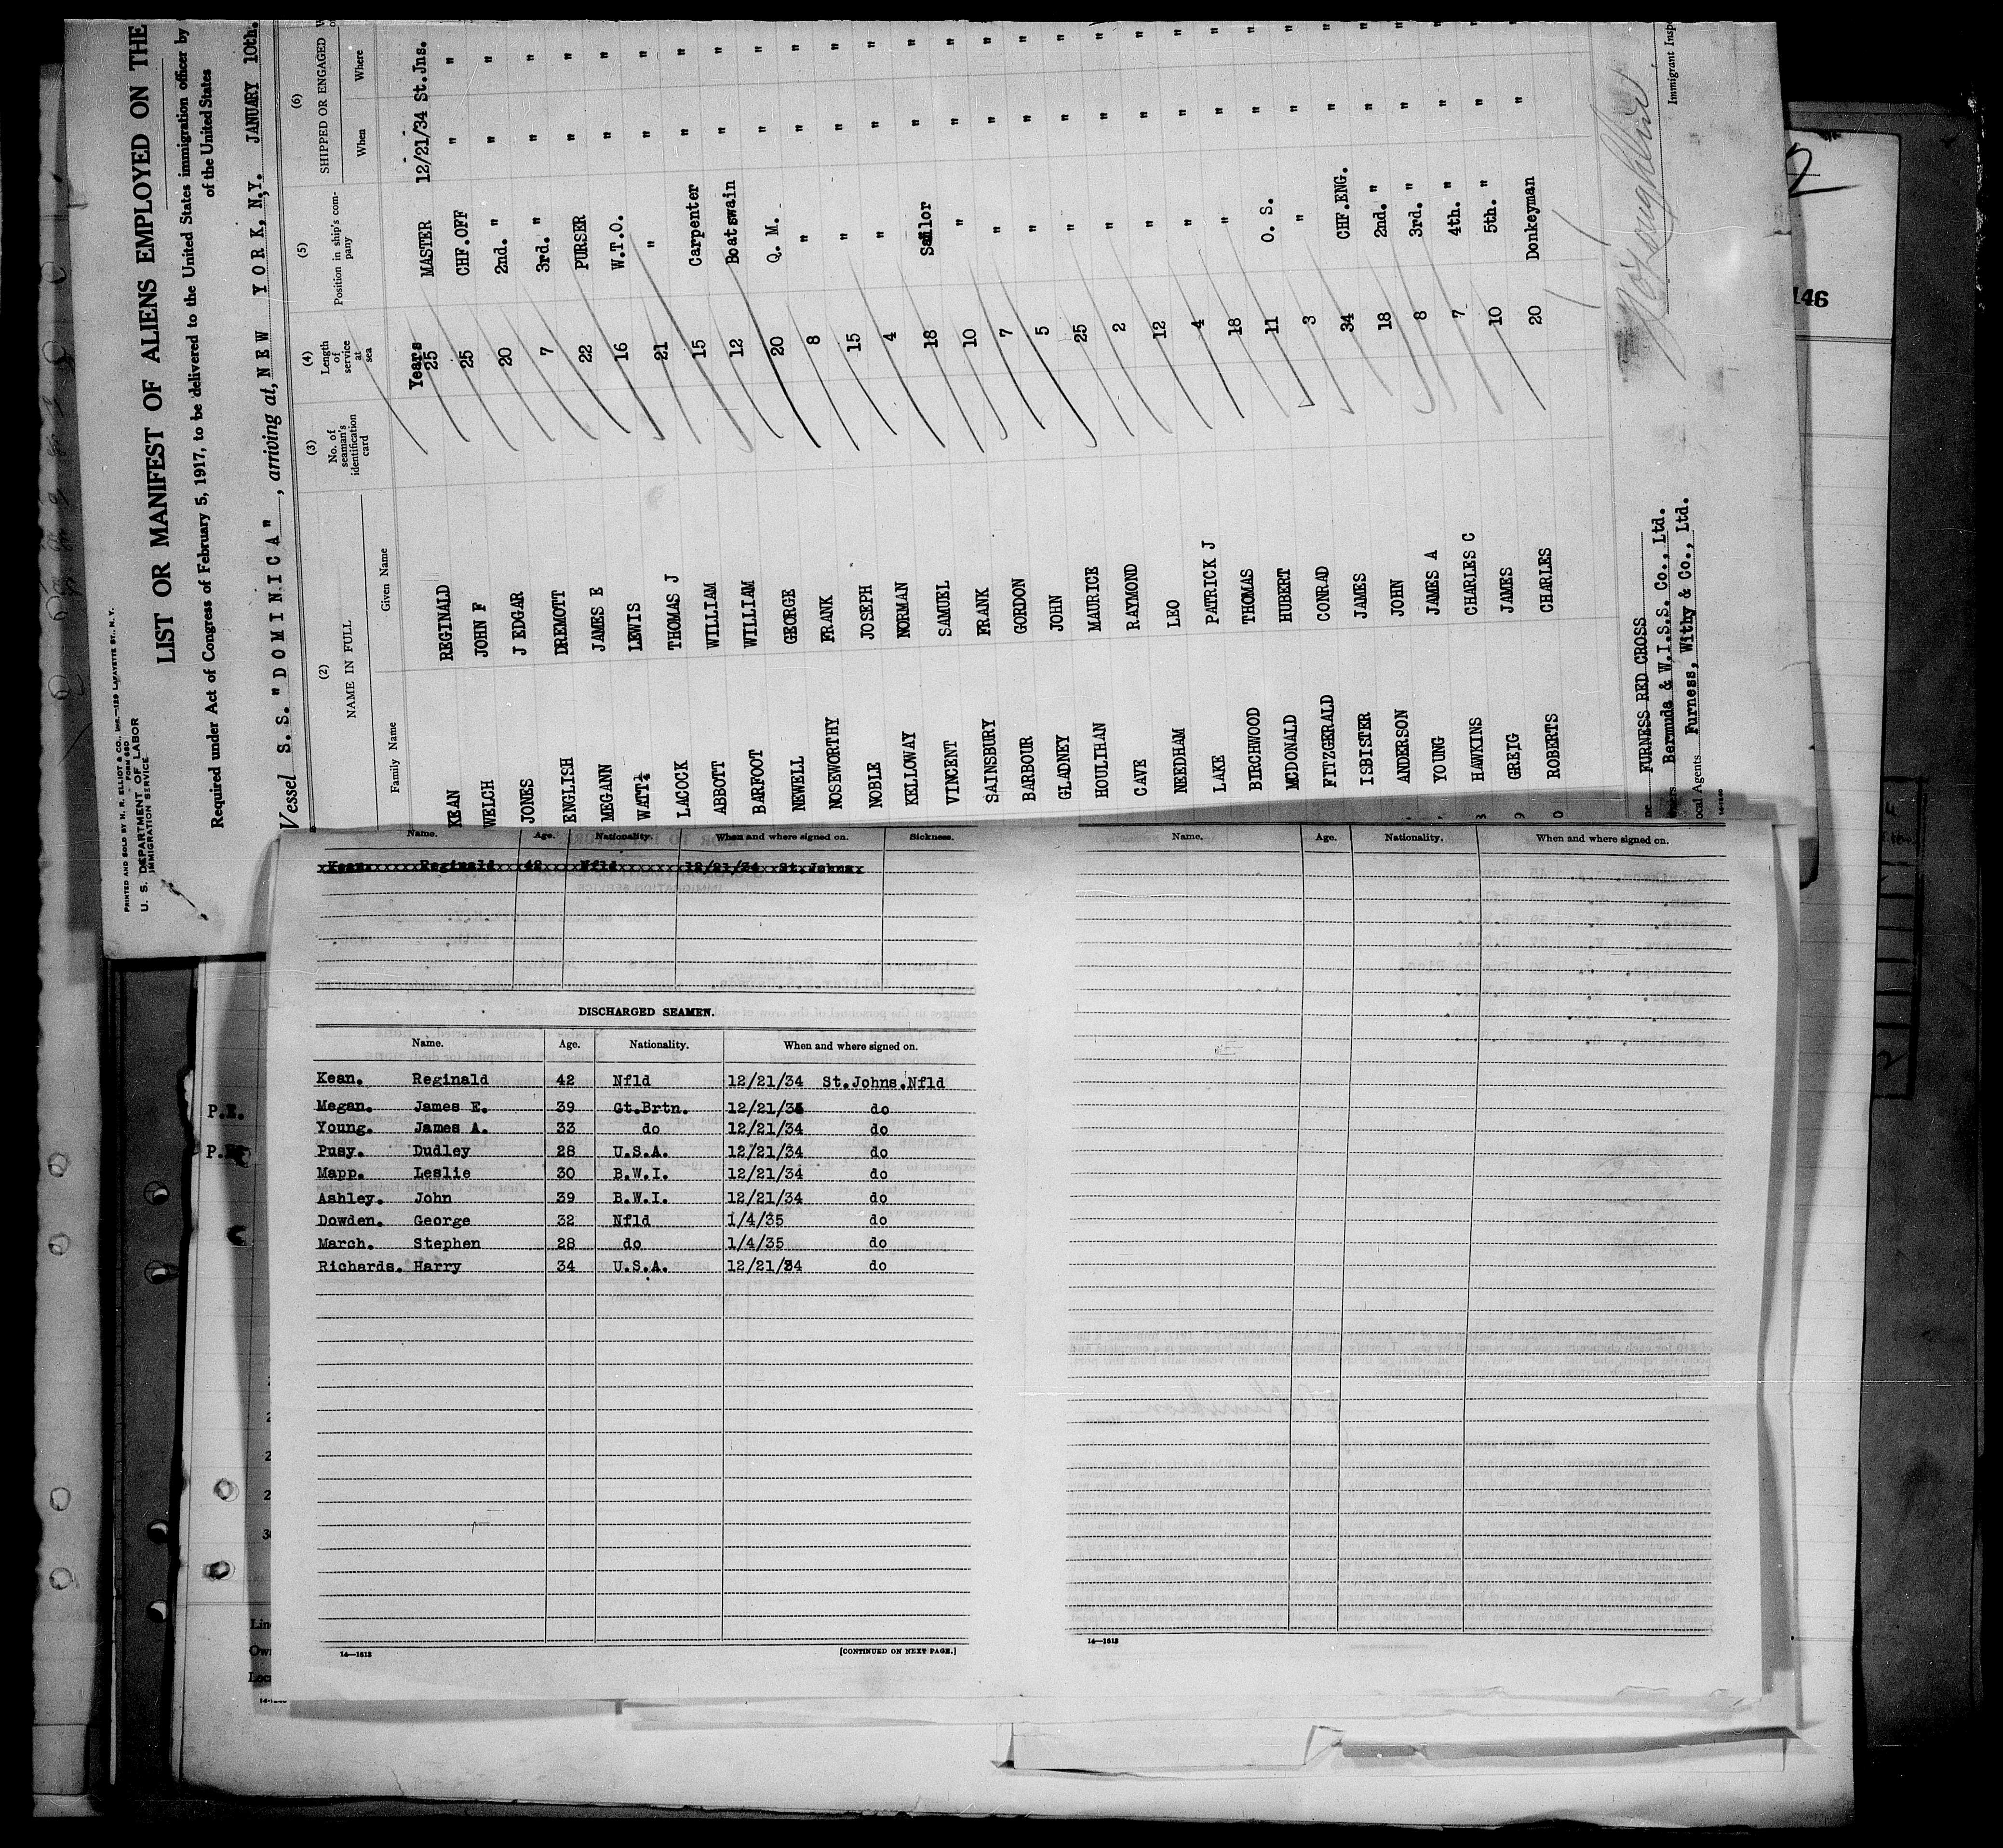 PRINTED AND SOLD BY H. R. ELLIOT & CO., INC.—129 LAFAYETTE ST., N. Y.
FORM 680
U. S. DEPARTMENT OF LABOR
IMMIGRATION SERVICE
LIST OR MANIFEST OF ALIENS EMPLOYED ON THE
Required under Act of Congress of February 5, 1917, to be delivered to the United States immigration officer by
of the United States
Vessel S.S. "DOMINICA", arriving at, NEW YORK, N,Y. JANUARY 10th.
(2) (3) (4) (5) (6)
NAME IN FULL No. of seaman's identification card Length of service at sea Position in ship's company SHIPPED OR ENGAGED
Family Name Given Name When Where
Years
KEAN REGINALD 25 MASTER 12/21/34 St.Jns.
WELCH JOHN F 25 CHF.OFF " "
JONES J EDGAR 20 2nd. " " "
ENGLISH DREMOTT 7 3rd. " " "
MEGANN JAMES E 22 PURSER " "
WATT LEWIS 16 W.T.O. " "
LACOCK THOMAS J 21 " " "
ABBOTT WILLIAM 15 Carpenter " "
BARFOOT WILLIAM 12 Boatswain " "
NEWELL GEORGE 20 Q. M. " "
NOSEWORTHY FRANK 8 " " "
NOBLE JOSEPH 15 " " "
KELLOWAY NORMAN 4 " " "
VINCENT SAMUEL 18 Sailor " "
SAINSBURY FRANK 10 " " "
BARBOUR GORDON 7 " " "
GLADNEY JOHN 5 " " "
HOULIHAN MAURICE 25 " " "
CAVE RAYMOND 2 " " "
NEEDHAM LEO 12 " " "
LAKE PATRICK J 4 " " "
BIRCHWOOD THOMAS 18 " " "
MCDONALD HUBERT 11 O. S. " "
FITZGERALD CONRAD 3 " " "
ISBISTER JAMES 34 CHF.ENG. " "
ANDERSON JOHN 18 2nd. " " "
YOUNG JAMES A 8 3rd. " " "
HAWKINS CHARLES C 7 4th. " " "
GREIG JAMES 10 5th. " " "
ROBERTS CHARLES 20 Donkeyman "
FURNESS RED CROSS
Bermuda & W.I.S.S. Co., Ltd.
Local Agents Furness, Withy & Co., Ltd.
Immigrant Insp
2
146
Name. Age. Nationality. When and where signed on. Sickness.
Kean. Reginald 42 Nfld 12/21/34 St.Johns
DISCHARGED SEAMEN.
Name. Age. Nationality. When and where signed on.
Kean. Reginald 42 Nfld 12/21/34 St.Johns.Nfld
P.E. Megan. James E. 39 Gt.Brtn. 12/21/34 do
Young. James A. 33 do 12/21/34 do
Pusy. Dudley 28 U.S.A. 12/21/34 do
Mapp. Leslie 30 B.W.I. 12/21/34 do
Ashley. John 39 B.W.I. 12/21/34 do
Dowden. George 32 Nfld 1/4/35 do
March. Stephen 28 do 1/4/35 do
Richards. Harry 34 U.S.A. 12/21/34 do
14—1613
[CONTINUED ON NEXT PAGE.]
Name. Age. Nationality. When and where signed on.
14—1613